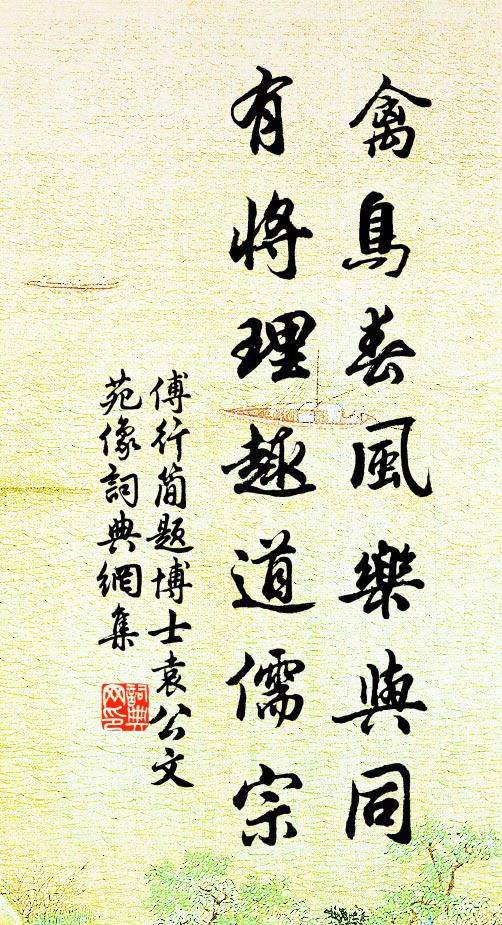 禽鳥春風樂與同
有將理趣道儒宗
傅行简题博士袁公文
苑像詞典網集
詞典網印